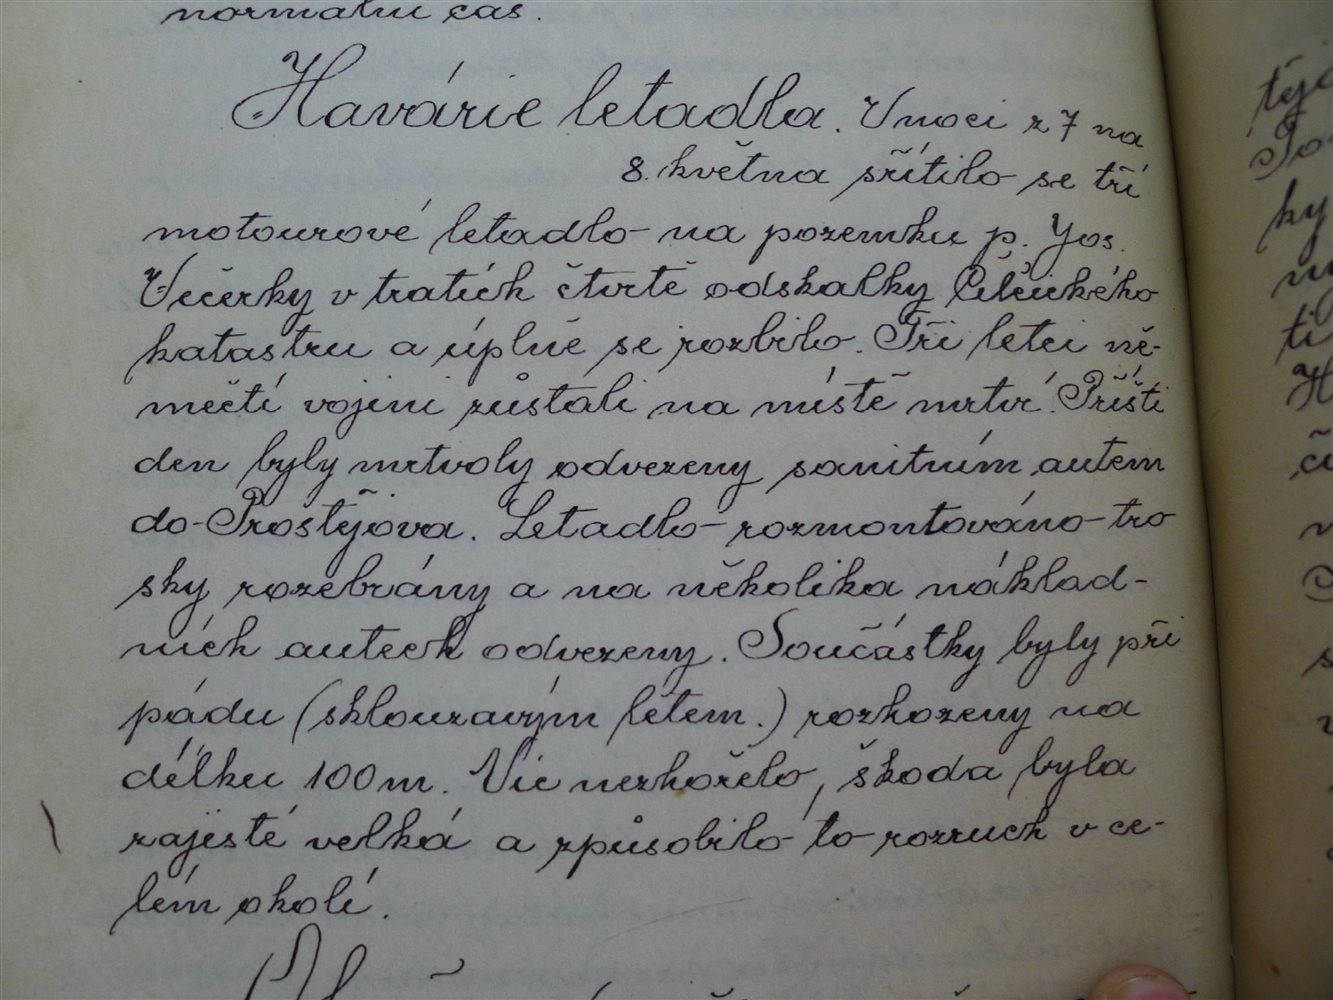 normální čas.
Havárie letadla. V noci z 7 na
8. května sřítilo se tří
motourové letadlo na pozemku p. Jos.
Večerky v tratích čtvrtě odskalky Čelčického
katastru a úplně se rozbilo. Tři letci ně-
mečtí vojini zůstali na místě mrtvi. Příští
den byly mrtvoly odvezeny sanitním autem
do Prostějova. Letadlo rozmontováno tro
sky rozebrány a na několika náklad-
ních autech odvezeny. Součástky byly při
pádu (sklouzavým letem.) rozhozeny na
délku 100 m. Víc neshořelo, škoda byla
zajisté velká a způsobilo to rozruch v ce-
lém okolí.